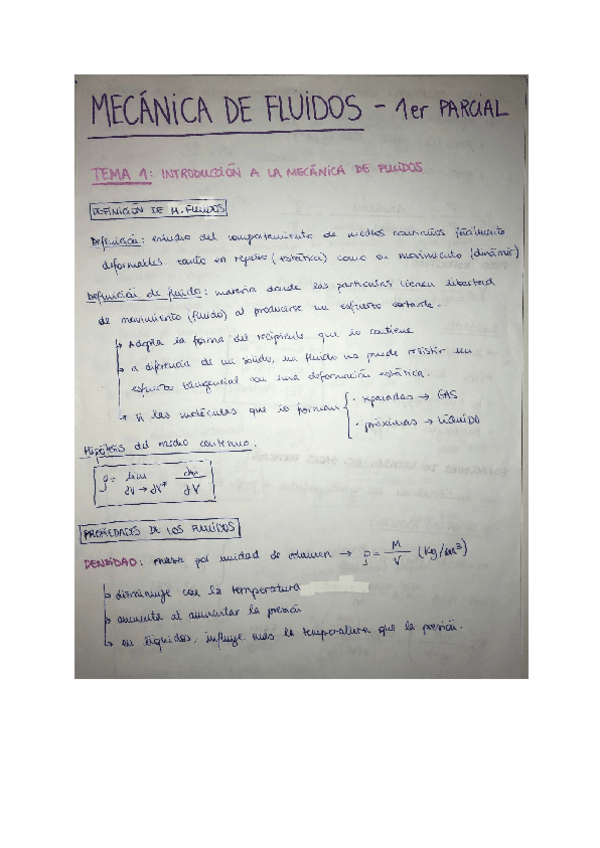 MECÁNICA DE FLUIDOS - 1er PARCIAL
TEMA 1: INTRODUCCIÓN A LA MECÁNICA DE FLUIDOS
DEFINICIÓN DE M. FLUIDOS
Definición: estudio del comportamiento de medios continuos fácilmente
deformables, tanto en reposo (estática) como en movimiento (dinámic)
Definición de fluido: materia donde las partículas tienen libertad
de movimiento (fluido) al producirse un esfuerzo cortante.
↳ Adopta la forma del recipiente que lo contiene
↳ a diferencia de un sólido, un fluido no puede resistir un
esfuerzo tangencial con una deformación estática.
↳ si las moléculas que lo forman { · separadas → GAS
· próximas → LÍQUIDO
Hipótesis del medio continuo.
ρ = lim dm
∂V → ∂V* ∂V
PROPIEDADES DE LOS FLUIDOS
DENSIDAD: masa por unidad de volumen → ρ = M/V (Kg/m³)
↳ disminuye con la temperatura
↳ aumenta al aumentar la presión
↳ en líquidos, influye más la temperatura que la presión.